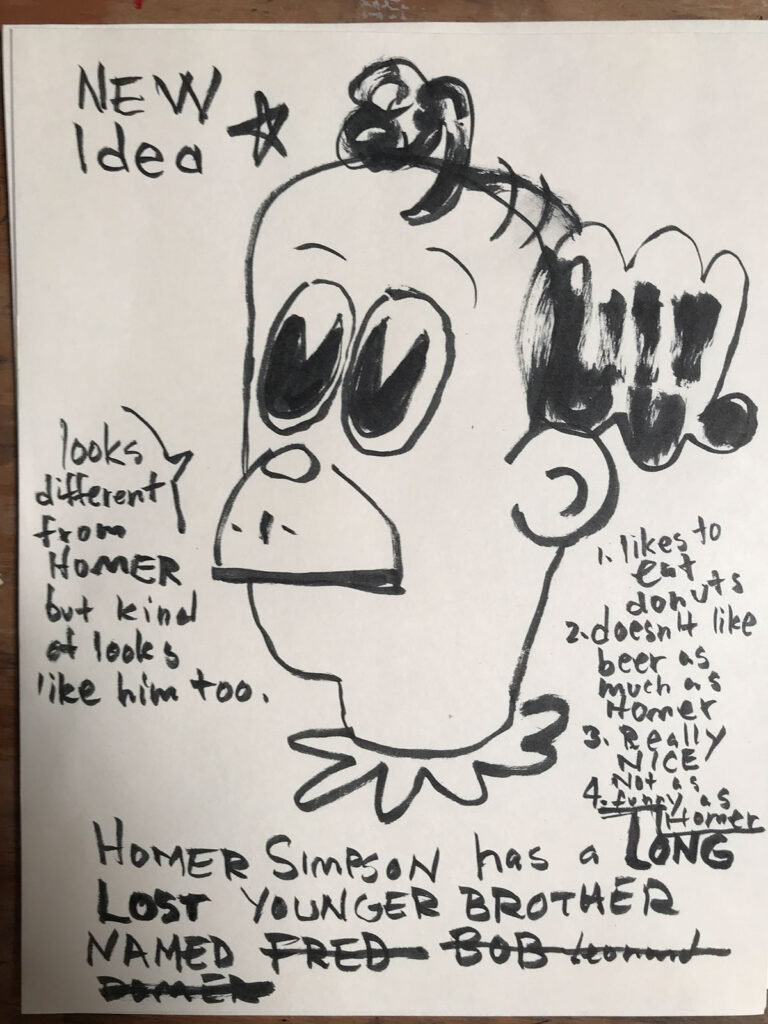 NEW
Idea
looks
different
from
HOMER
but kind
of looks
like him too.
1. likes to
eat
donuts
2. doesn't like
beer as
much as
Homer
3. Really
NICE
4. Not as
funny as
Homer
HOMER SIMPSON has a LONG
LOST YOUNGER BROTHER
NAMED FRED BOB leonard
DOMER